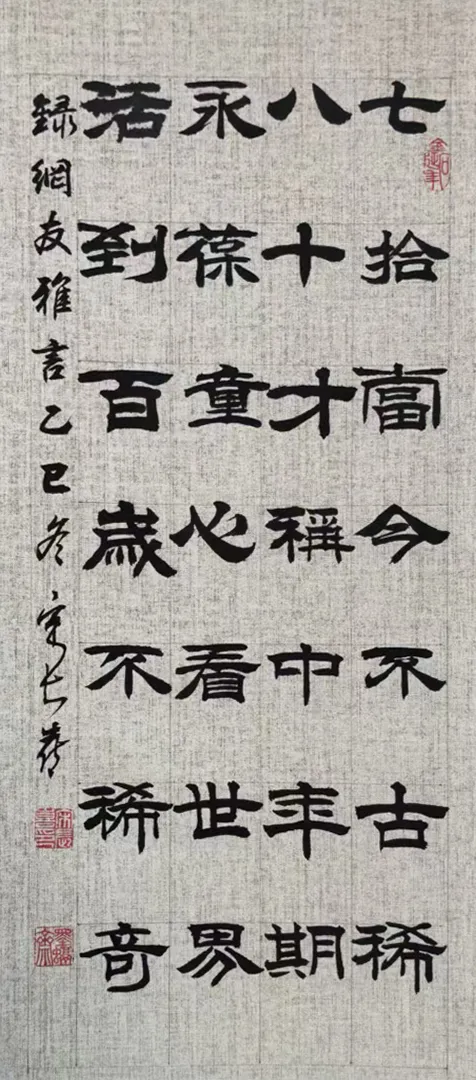 七拾當今不古稀
八十才稱中年期
永葆童心看世界
活到百歲不稀奇
録網友雅言乙巳冬宋长